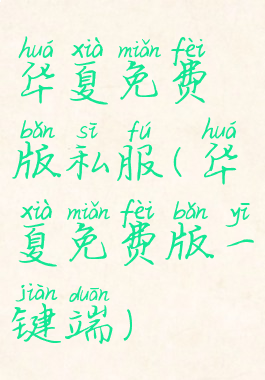 huá xià miǎn fèi
华夏免费
bǎn sī fú huá
版私服(华
xià miǎn fèi bǎn yī
夏免费版一
jiàn duān
键端)